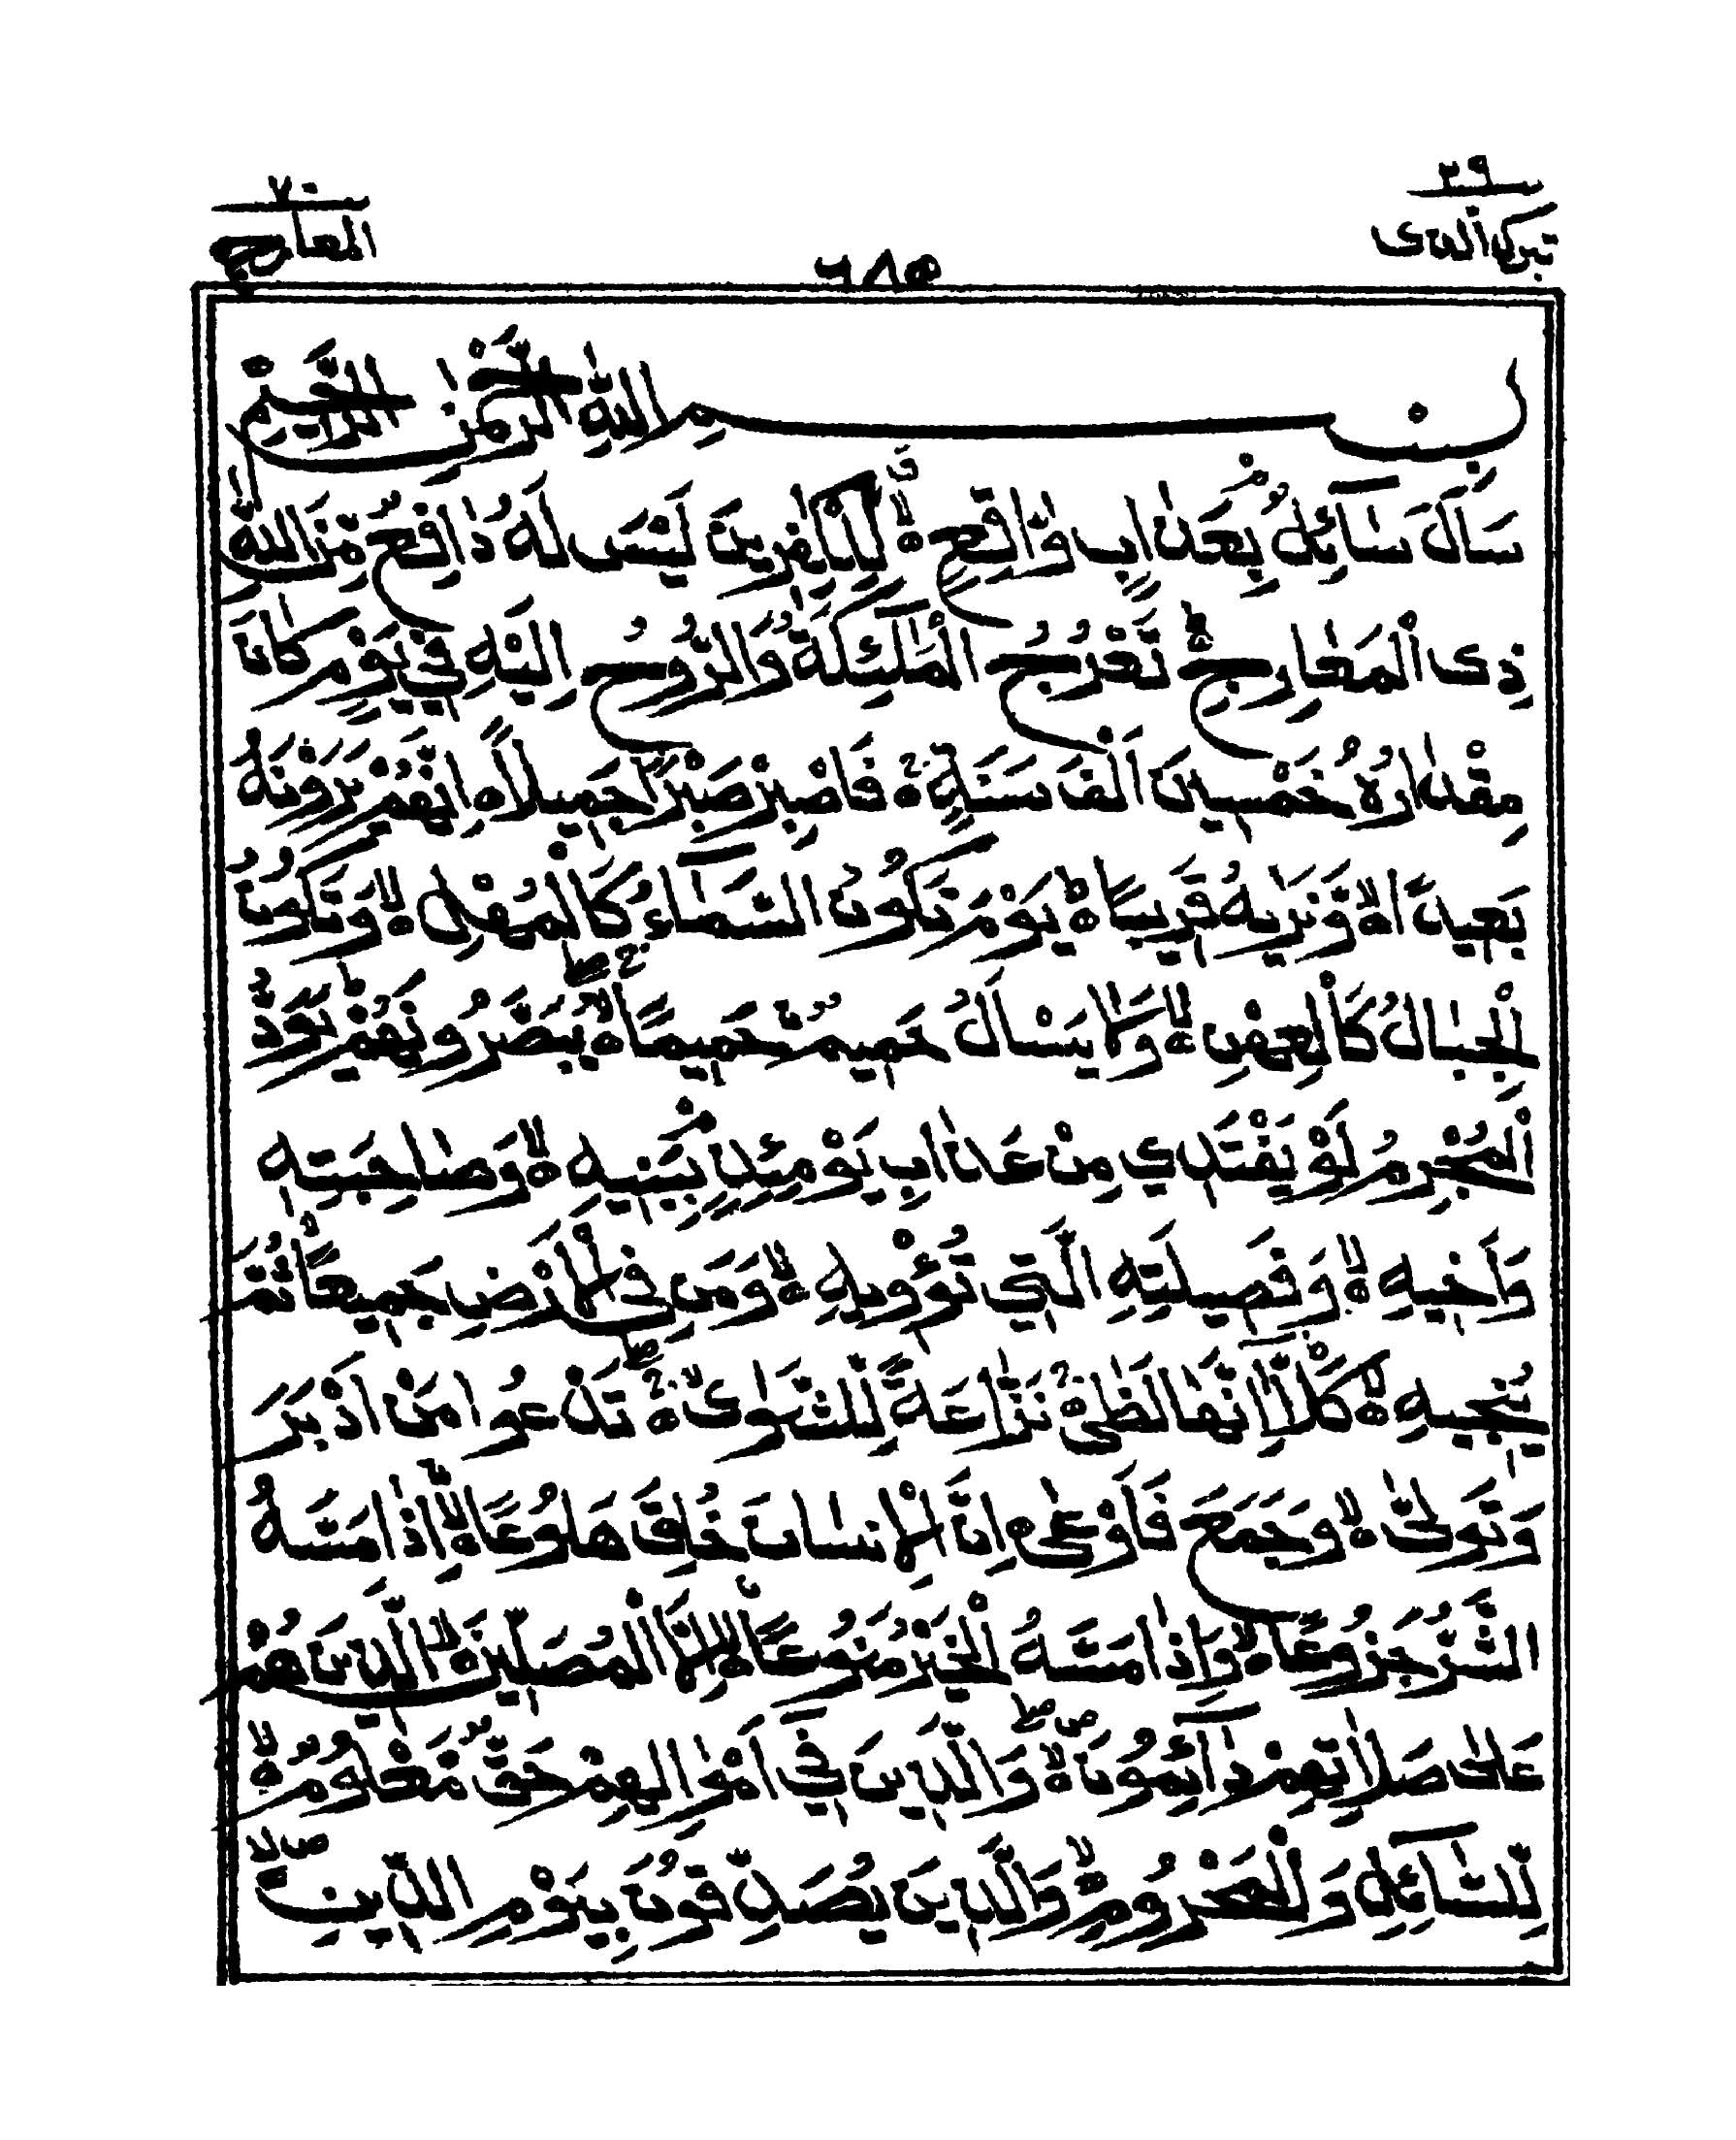 تبرک الذی ٢٩
٦٨٥
المعارج ٧٠
بِسْمِ اللّٰهِ الرَّحْمٰنِ الرَّحِيْمِ
سَاَلَ سَآئِلٌۢ بِعَذَابٍ وَّاقِعٍ ۙ لِّلْكٰفِرِيْنَ لَيْسَ لَهٗ دَافِعٌ مِّنَ اللّٰهِ
ذِى الْمَعَارِجِ ؕ تَعْرُجُ الْمَلٰٓئِكَةُ وَالرُّوْحُ اِلَيْهِ فِيْ يَوْمٍ كَانَ
مِقْدَارُهٗ خَمْسِيْنَ اَلْفَ سَنَةٍ ۚ فَاصْبِرْ صَبْرًا جَمِيْلًا اِنَّهُمْ يَرَوْنَهٗ
بَعِيْدًا ۙ وَّنَرٰىهُ قَرِيْبًا ؕ يَوْمَ تَكُوْنُ السَّمَآءُ كَالْمُهْلِ ۙ وَتَكُوْنُ
الْجِبَالُ كَالْعِهْنِ ۙ وَلَا يَسْـَٔلُ حَمِيْمٌ حَمِيْمًا ۚۖ يُّبَصَّرُوْنَهُمْ ؕ يَوَدُّ
الْمُجْرِمُ لَوْ يَفْتَدِيْ مِنْ عَذَابِ يَوْمِئِذٍۢ بِبَنِيْهِ ۙ وَصَاحِبَتِهٖ
وَاَخِيْهِ ۙ وَفَصِيْلَتِهِ الَّتِيْ تُؤْوِيْهِ ۙ وَمَنْ فِى الْاَرْضِ جَمِيْعًا ۙ ثُمَّ
يُنْجِيْهِ ۙ كَلَّا ؕ اِنَّهَا لَظٰى ۙ نَزَّاعَةً لِّلشَّوٰى ۚۖ تَدْعُوْا مَنْ اَدْبَرَ
وَتَوَلّٰى ۙ وَجَمَعَ فَاَوْعٰى اِنَّ الْاِنْسَانَ خُلِقَ هَلُوْعًا ۙ اِذَا مَسَّهُ
الشَّرُّ جَزُوْعًا ۙ وَّاِذَا مَسَّهُ الْخَيْرُ مَنُوْعًا ۙ اِلَّا الْمُصَلِّيْنَ ۙ الَّذِيْنَ هُمْ
عَلٰى صَلَاتِهِمْ دَآئِمُوْنَ ۙ وَالَّذِيْنَ فِيْ اَمْوَالِهِمْ حَقٌّ مَّعْلُوْمٌ ۙ
لِّلسَّآئِلِ وَالْمَحْرُوْمِ ۙ وَالَّذِيْنَ يُصَدِّقُوْنَ بِيَوْمِ الدِّيْنِ ۙ